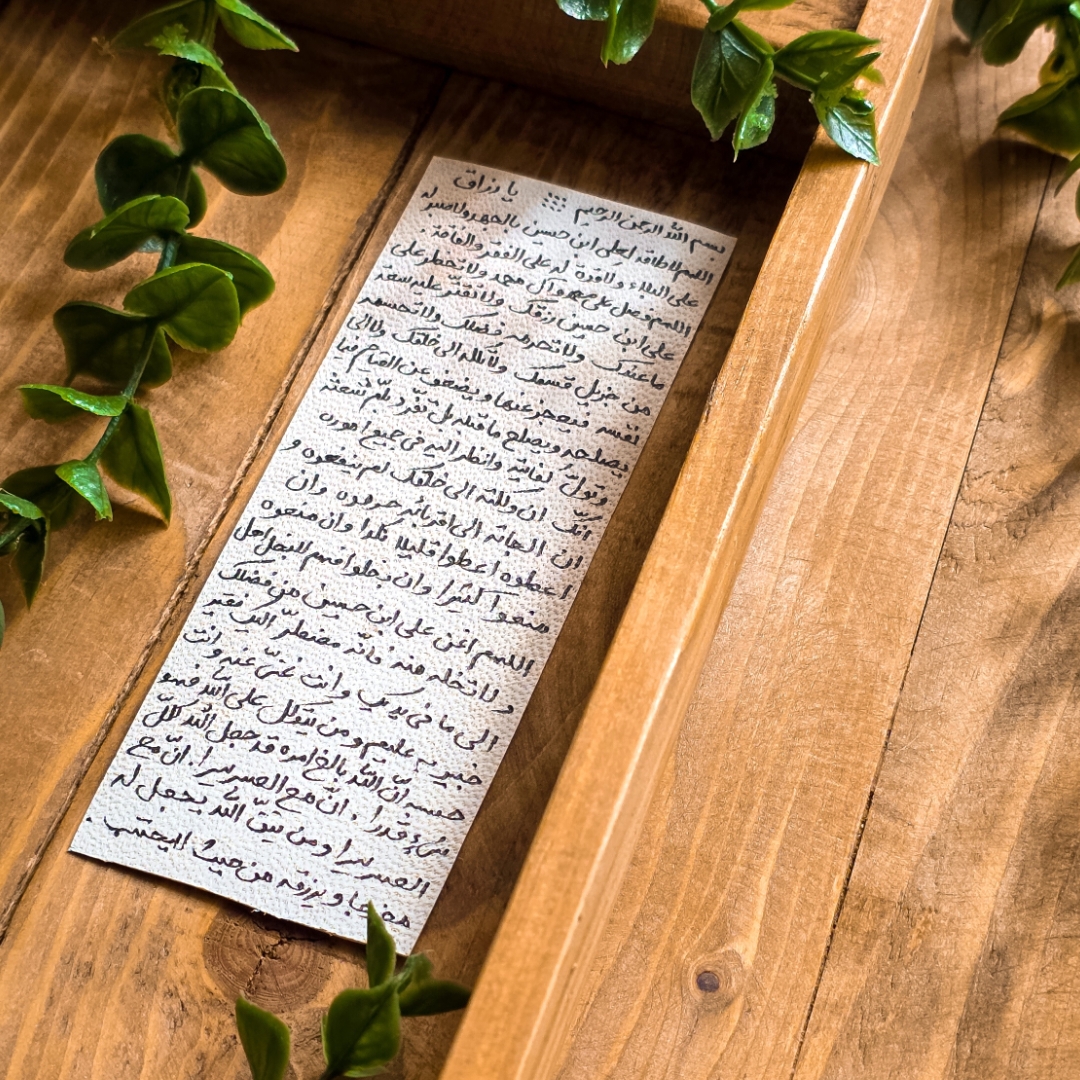 بسم الله الرحمن الرحيم ⁘ يا رزاق
اللهم لا طاقة لعلی ابن حسین بالجهد ولا صبر له
علی البلاء ولا قوة له علی الفقر والفاقة.
اللهم فصل علی محمد وآل محمد ولا تحظر علی
علی ابن حسین رزقک ولا تقتّر علیه سعة
ما عندک ولا تحرمه فضلک ولا تحسمه
من جزیل قسمک ولا تکله الی خلقک ولا الی
نفسه فیعجز عنها و یضعف عن القیام فیما
یصلحه ویصلح ما قبله بل تفرد بلمّ شعثه
وتولّ کفایته وانظر الیه فی جمیع اموره
انّک ان وکلته الی خلقک لم ینفعوه و
ان الجأته الی اقربائه حرموه وان
اعطوه اعطوا قلیلا نکدا وان منعوه
منعوا کثیرا وان بخلوا فهم للبخل اهل
اللهم اغن علی ابن حسین من فضلک
ولا تخله منه فانّه مضطر الیک فقیر
الی ما فی یدیک وانت غنیّ عنه وانت
خبیر به علیم و من یتوکل علی الله فهو
حسبه انّ الله بالغ امره قد جعل الله لکلّ
شیء قدرا. انّ مع العسر یسرا. انّ مع
العسر یسرا ومن یتّق الله یجعل له
مخرجا و یرزقه من حیث لایحتسب.